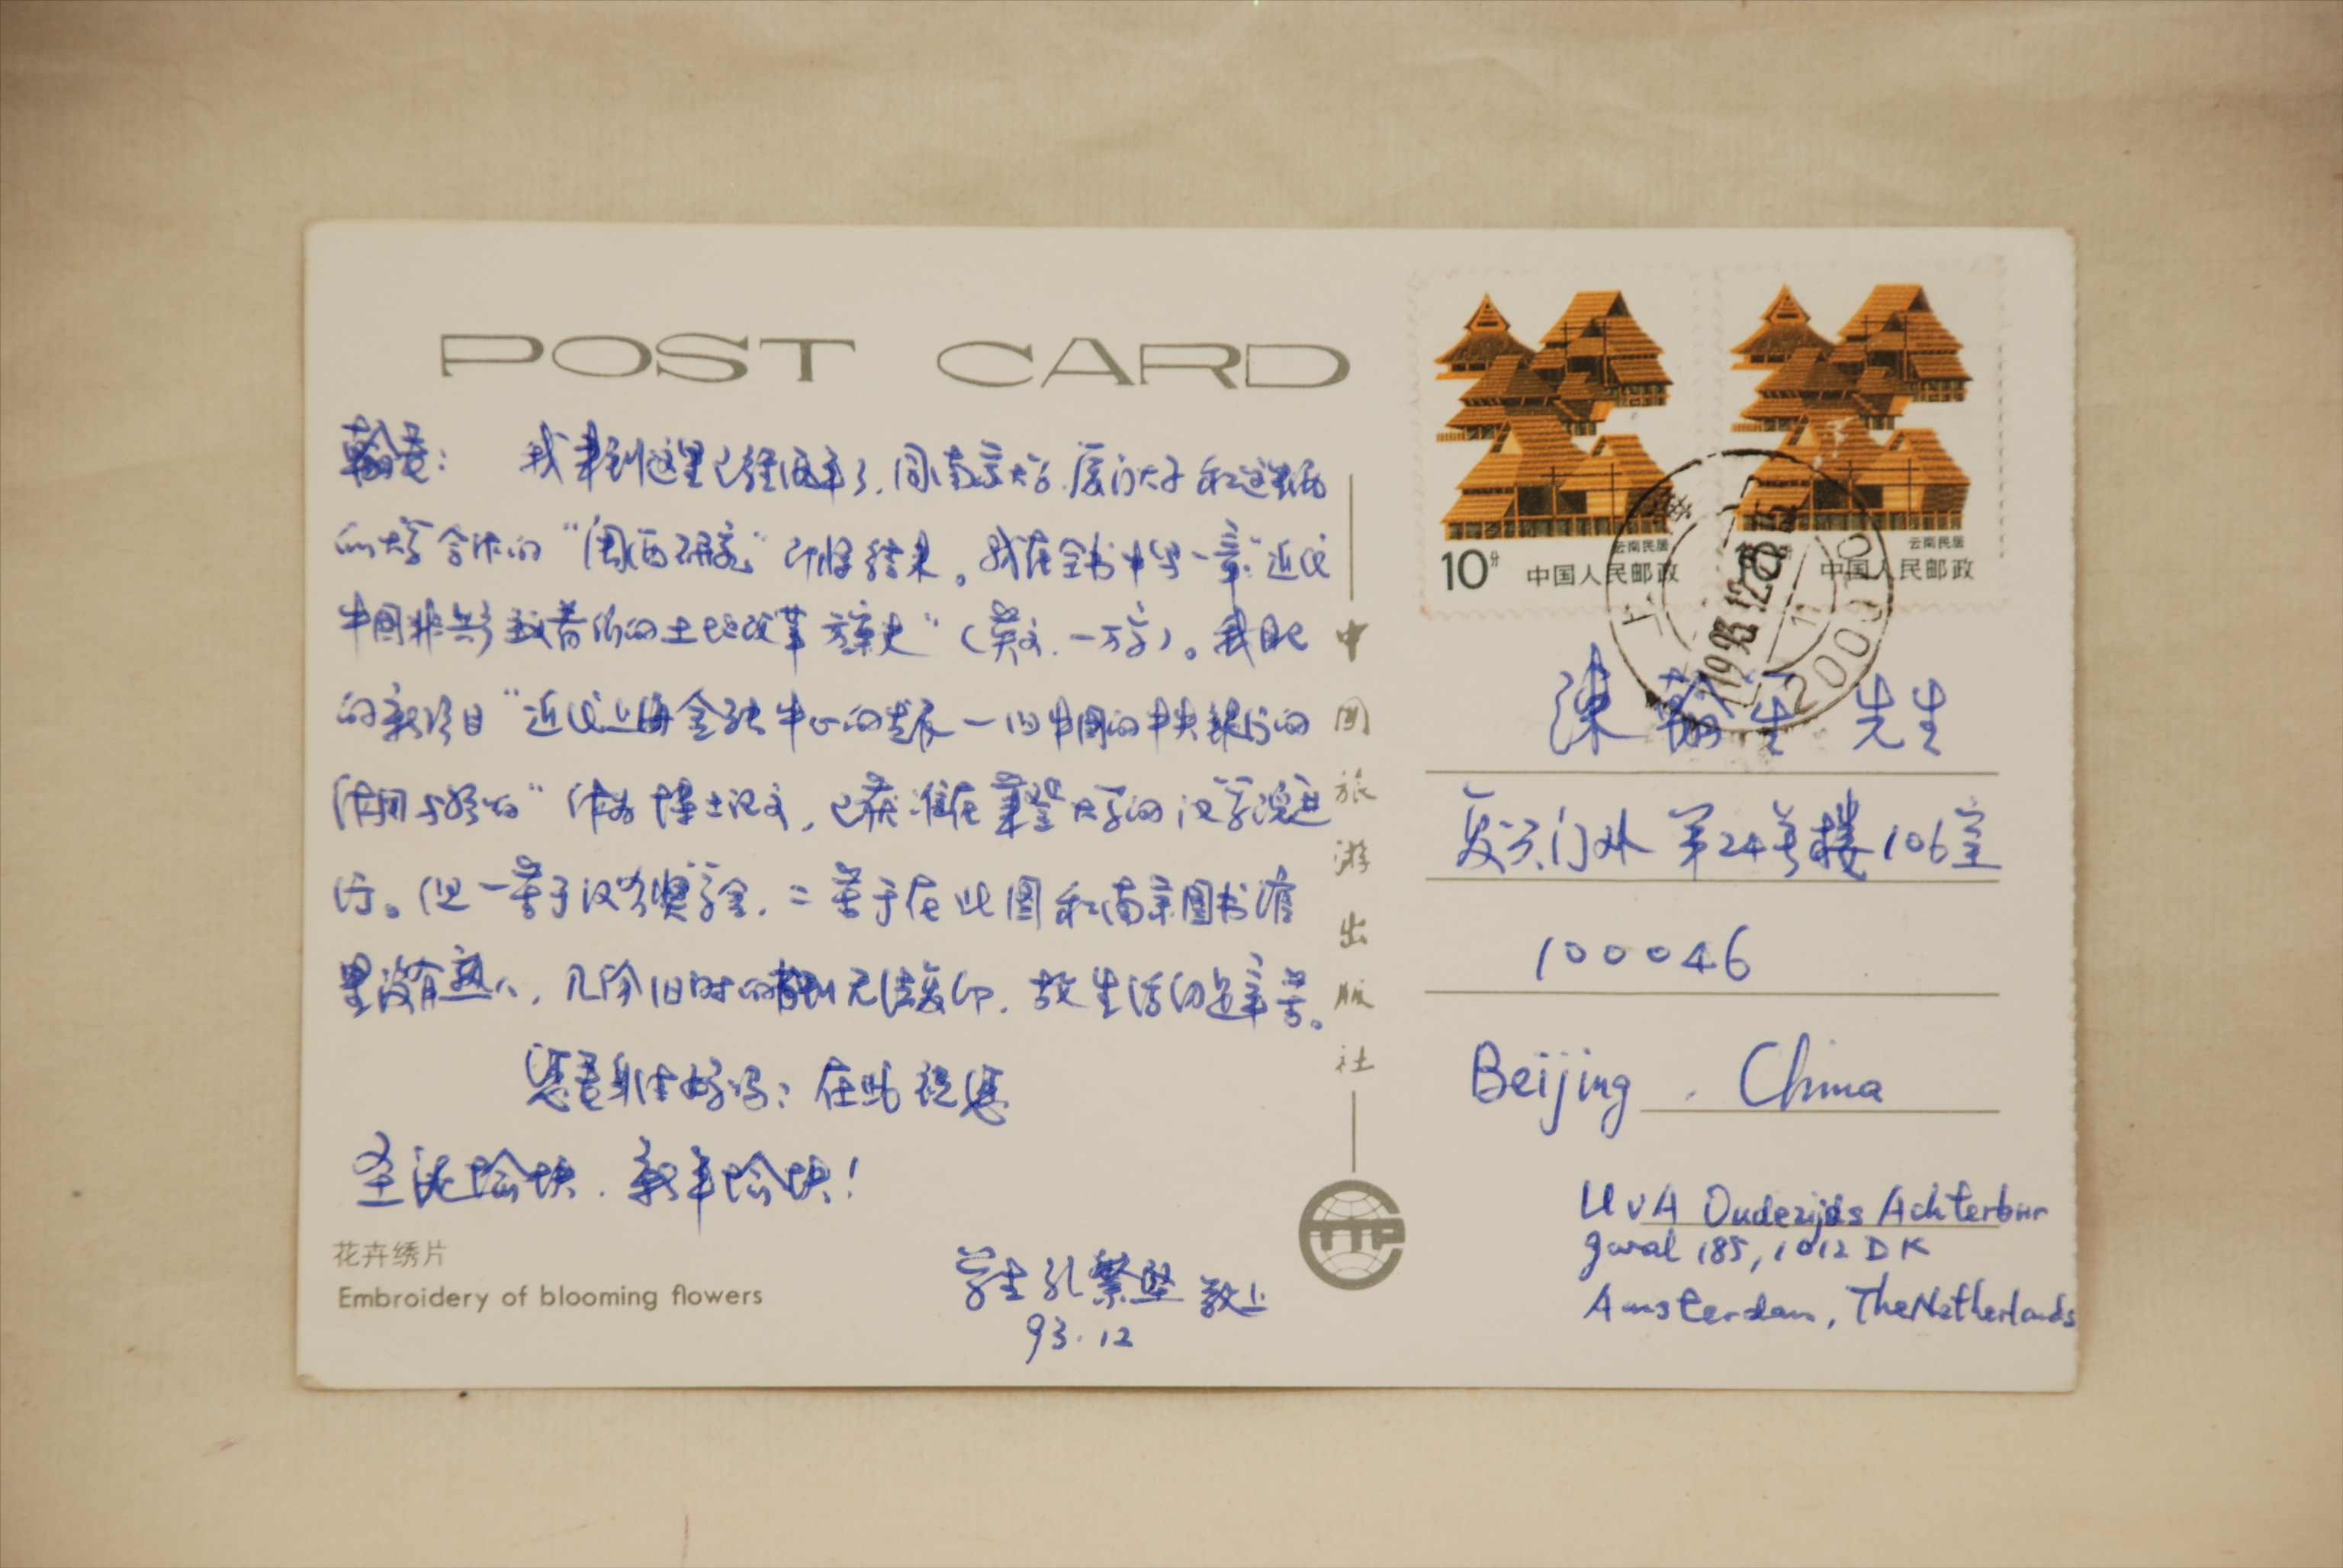 POST CARD
翰老： 我来到这里已经两年了，同南京大学、厦门大学和这里
的大学合作的“闽西研究”即将结束。我在全书中写一章“近代
中国非共产主义者所的土地改革方案史”（英文，一万字）。我
的新项目“近代上海金融中心的发展—旧中国的中央银行的
作用与影响”作为博士论文，已获准在莱登大学的汉学院进
行。但一苦于没有奖学金，二苦于在北图和南京图书馆
里没有熟人，几份旧时的无法复印，故生活仍是辛苦。
您老身体好吗？在此祝您
圣诞愉快，新年愉快！
学生 孔繁坚 敬上
93.12
花卉绣片
Embroidery of blooming flowers
中国旅游出版社
CTTP
10分 中国人民邮政
云南民居
10分 中国人民邮政
云南民居
上海
1993.12.20.15
陳翰笙 先生
复兴门外 第24号楼106室
100046
Beijing, China
UvA Oudezijds Achterbur
gwal 185, 1012 DK
Amsterdam, The Netherlands